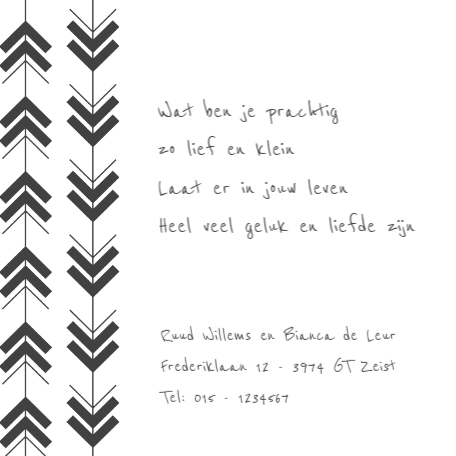 Wat ben je prachtig
zo lief en klein
Laat er in jouw leven
Heel veel geluk en liefde zijn
Ruud Willems en Bianca de Leur
Frederiklaan 12 - 3974 GT Zeist
Tel: 015 - 1234567